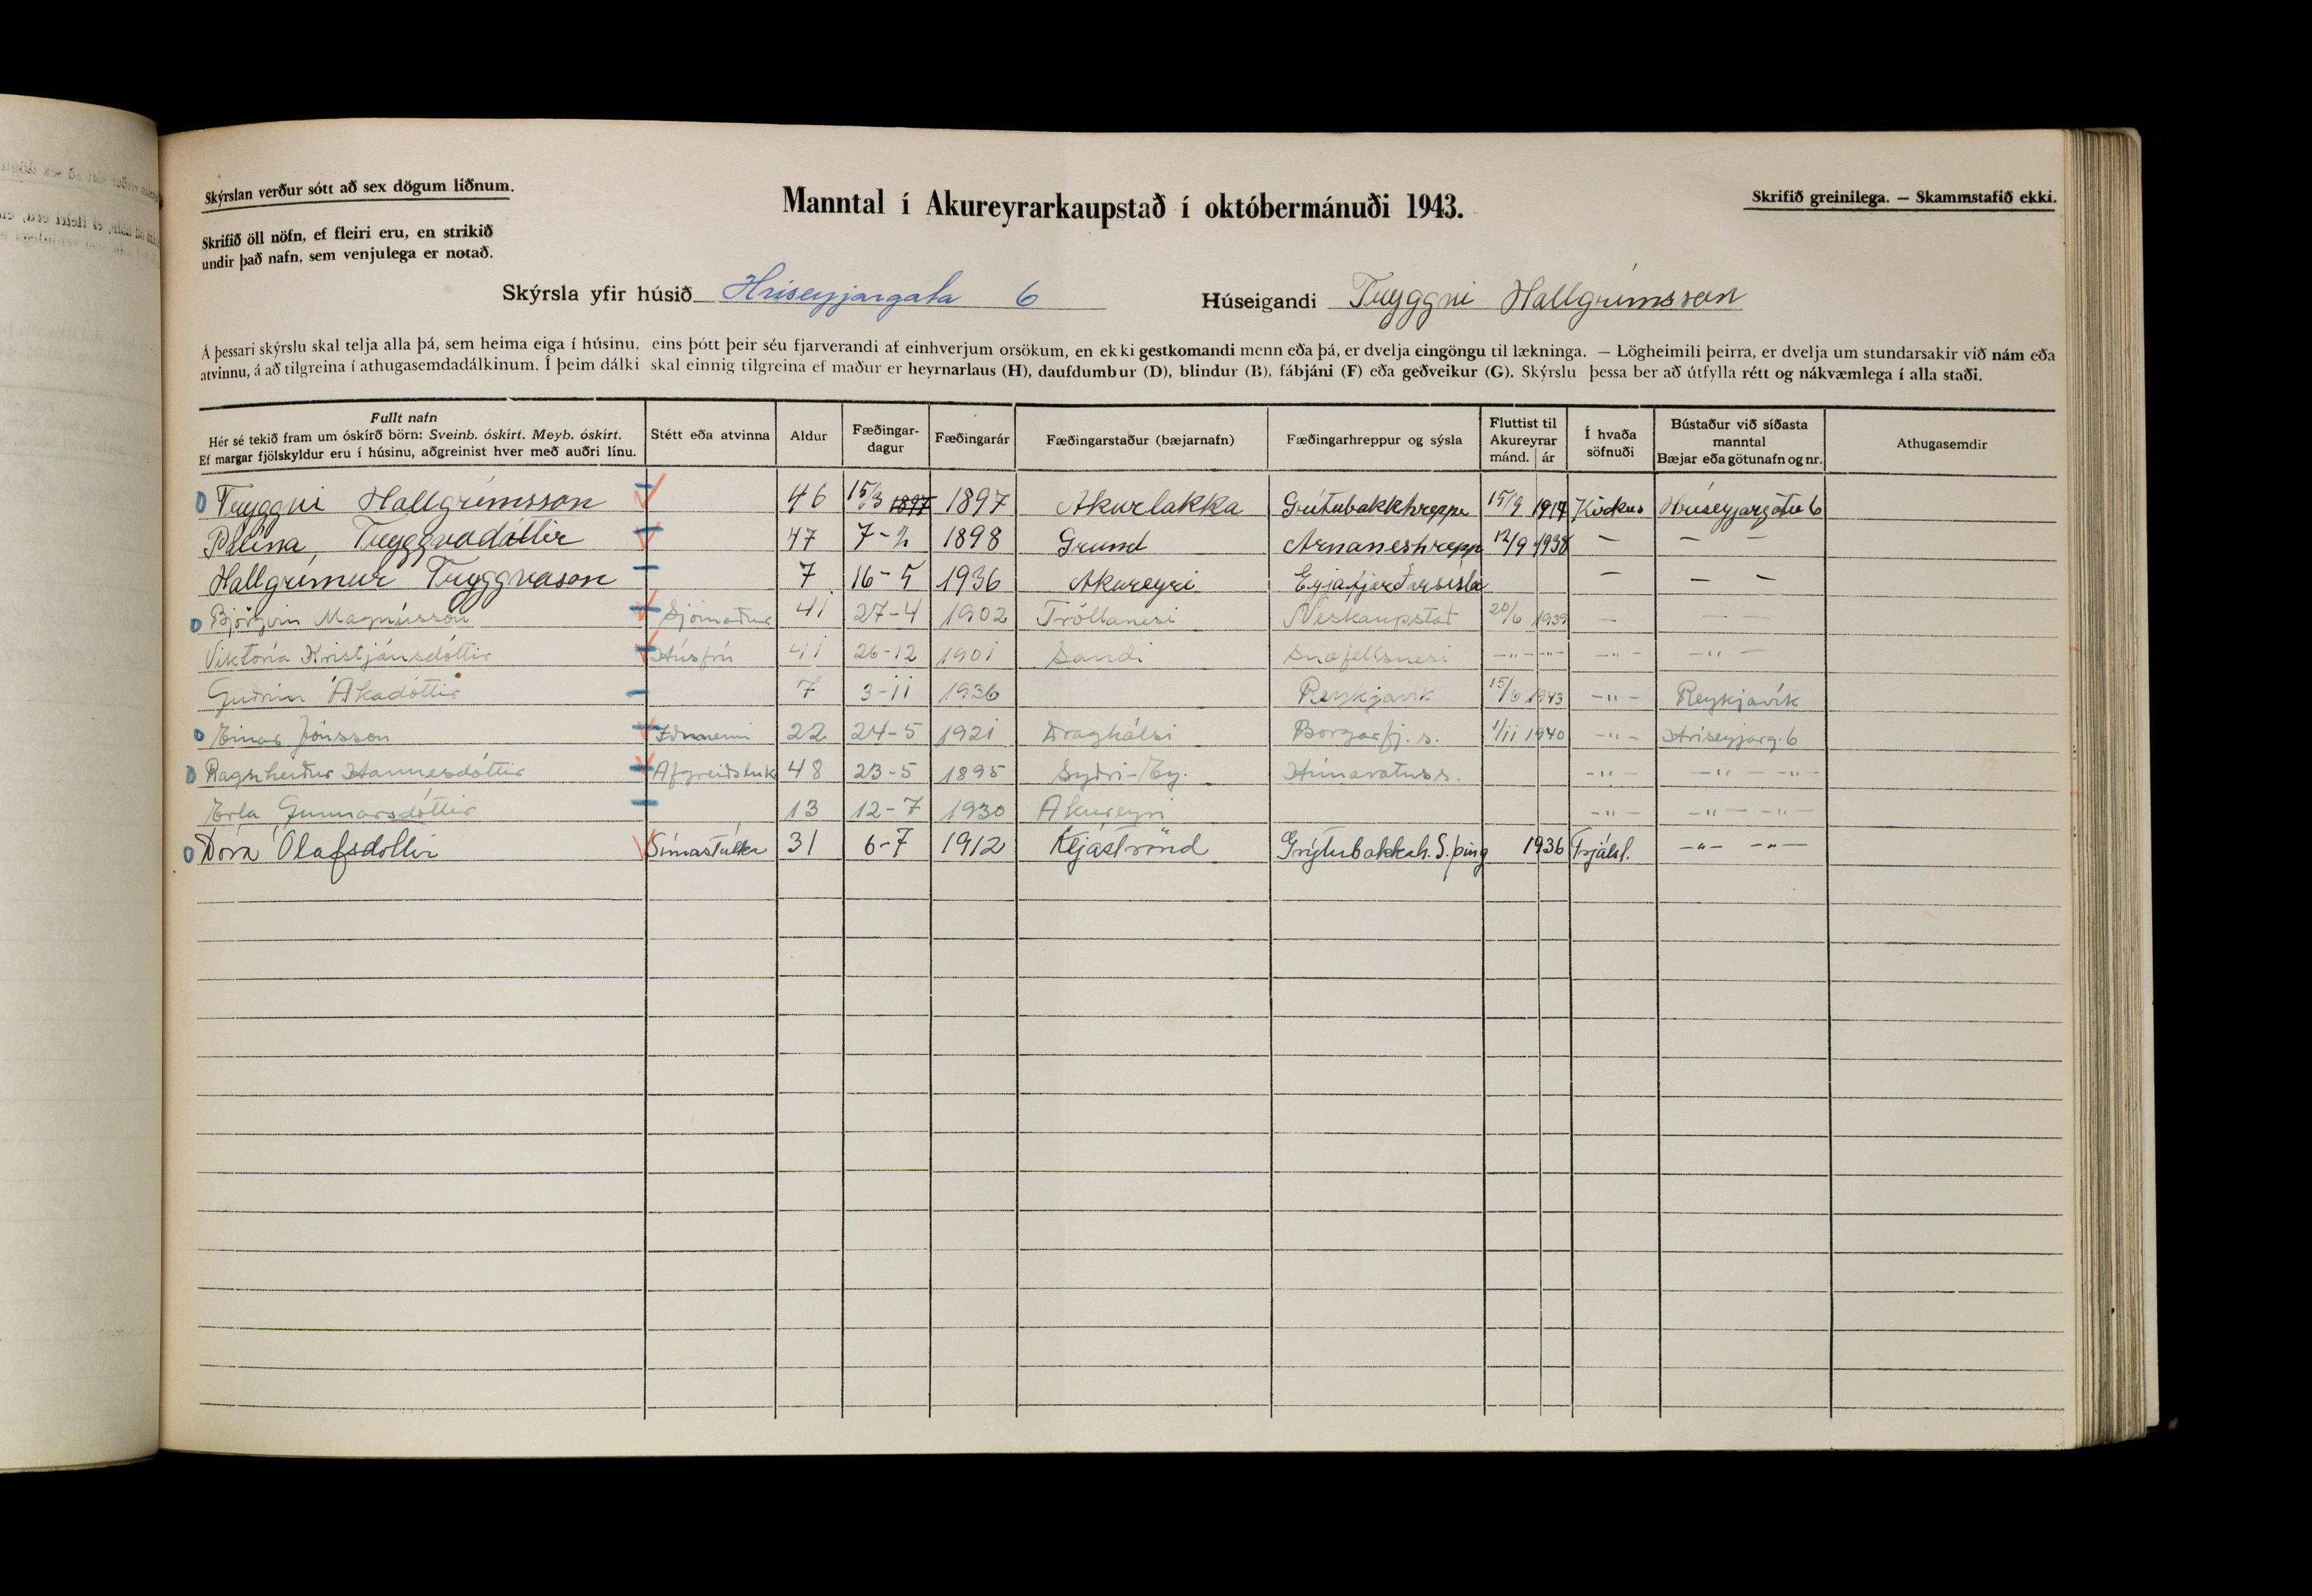 Skýrslan verður sótt að sex dögum liðnum.
Skrifið öll nöfn, ef fleiri eru, en strikið
undir það nafn, sem venjulega er notað.
Manntal í Akureyrarkaupstað í októbermánuði 1943.
Skrifið greinilega. — Skammstafið ekki.
Skýrsla yfir húsið Hríseyjargata 6 Húseigandi Tryggvi Hallgrímsson
Á þessari skýrslu skal telja alla þá, sem heima eiga í húsinu, eins þótt þeir séu fjarverandi af einhverjum orsökum, en ekki gestkomandi menn eða þá, er dvelja eingöngu til lækninga. — Lögheimili þeirra, er dvelja um stundarsakir við nám eða
atvinnu, á að tilgreina í athugasemdadálkinum. Í þeim dálki skal einnig tilgreina ef maður er heyrnarlaus (H), daufdumbur (D), blindur (B), fábjáni (F) eða geðveikur (G). Skýrslu þessa ber að útfylla rétt og nákvæmlega í alla staði.
Fullt nafn
Hér sé tekið fram um óskírð börn: Sveinb. óskírt. Meyb. óskírt.
Ef margar fjölskyldur eru í húsinu, aðgreinist hver með auðri línu.
Stétt eða atvinna
Aldur
Fæðingar-
dagur
Fæðingarár
Fæðingarstaður (bæjarnafn)
Fæðingarhreppur og sýsla
Fluttist til
Akureyrar
mánd. ár
Í hvaða
söfnuði
Bústaður við síðasta
manntal
Bæjar eða götunafn og nr.
Athugasemdir
Tryggvi Hallgrímsson 46 15/3 1897 1897 Akurbakka Grítubakkhreppi 15/9 1914 Kirkus Hríseyjargötu 6
Pálína Tryggvadóttir 47 7-2 1898 Grund Arnaneshrepp 12/9 1938 — — —
Hallgrímur Tryggvason 7 16-5 1936 Akureyri Eyjafjarðarsísla — — —
Björgvin Magnússon Sjómaður 41 27-4 1902 Tröllanesi Neskaupstað 20/6 1939 — — —
Viktoría Kristjánsdóttir Húsfrú 41 26-12 1901 Sandi Snæfellsnesi —"— —"— —"— —"—
Guðrún Ákadóttir 7 3-11 1936 Reykjavík 15/6 1943 —"— Reykjavík
Einar Jónsson Iðnnemi 22 24-5 1921 Draghálsi Borgarfj. s. 1/11 1940 —"— Hríseyjarg. 6
Ragnheiður Hannesdóttir Afgreiðsluk 48 23-5 1895 Syðri-Ey. Húnavatnss. —"— —"— —"—
Erla Gunnarsdóttir 13 12-7 1930 Akureyri —"— —"— —"—
Dóra Ólafsdóttir Símastúlka 31 6-7 1912 Kljáströnd Grýtubakkah. S. þing 1936 Frjálsl. —"— —"—